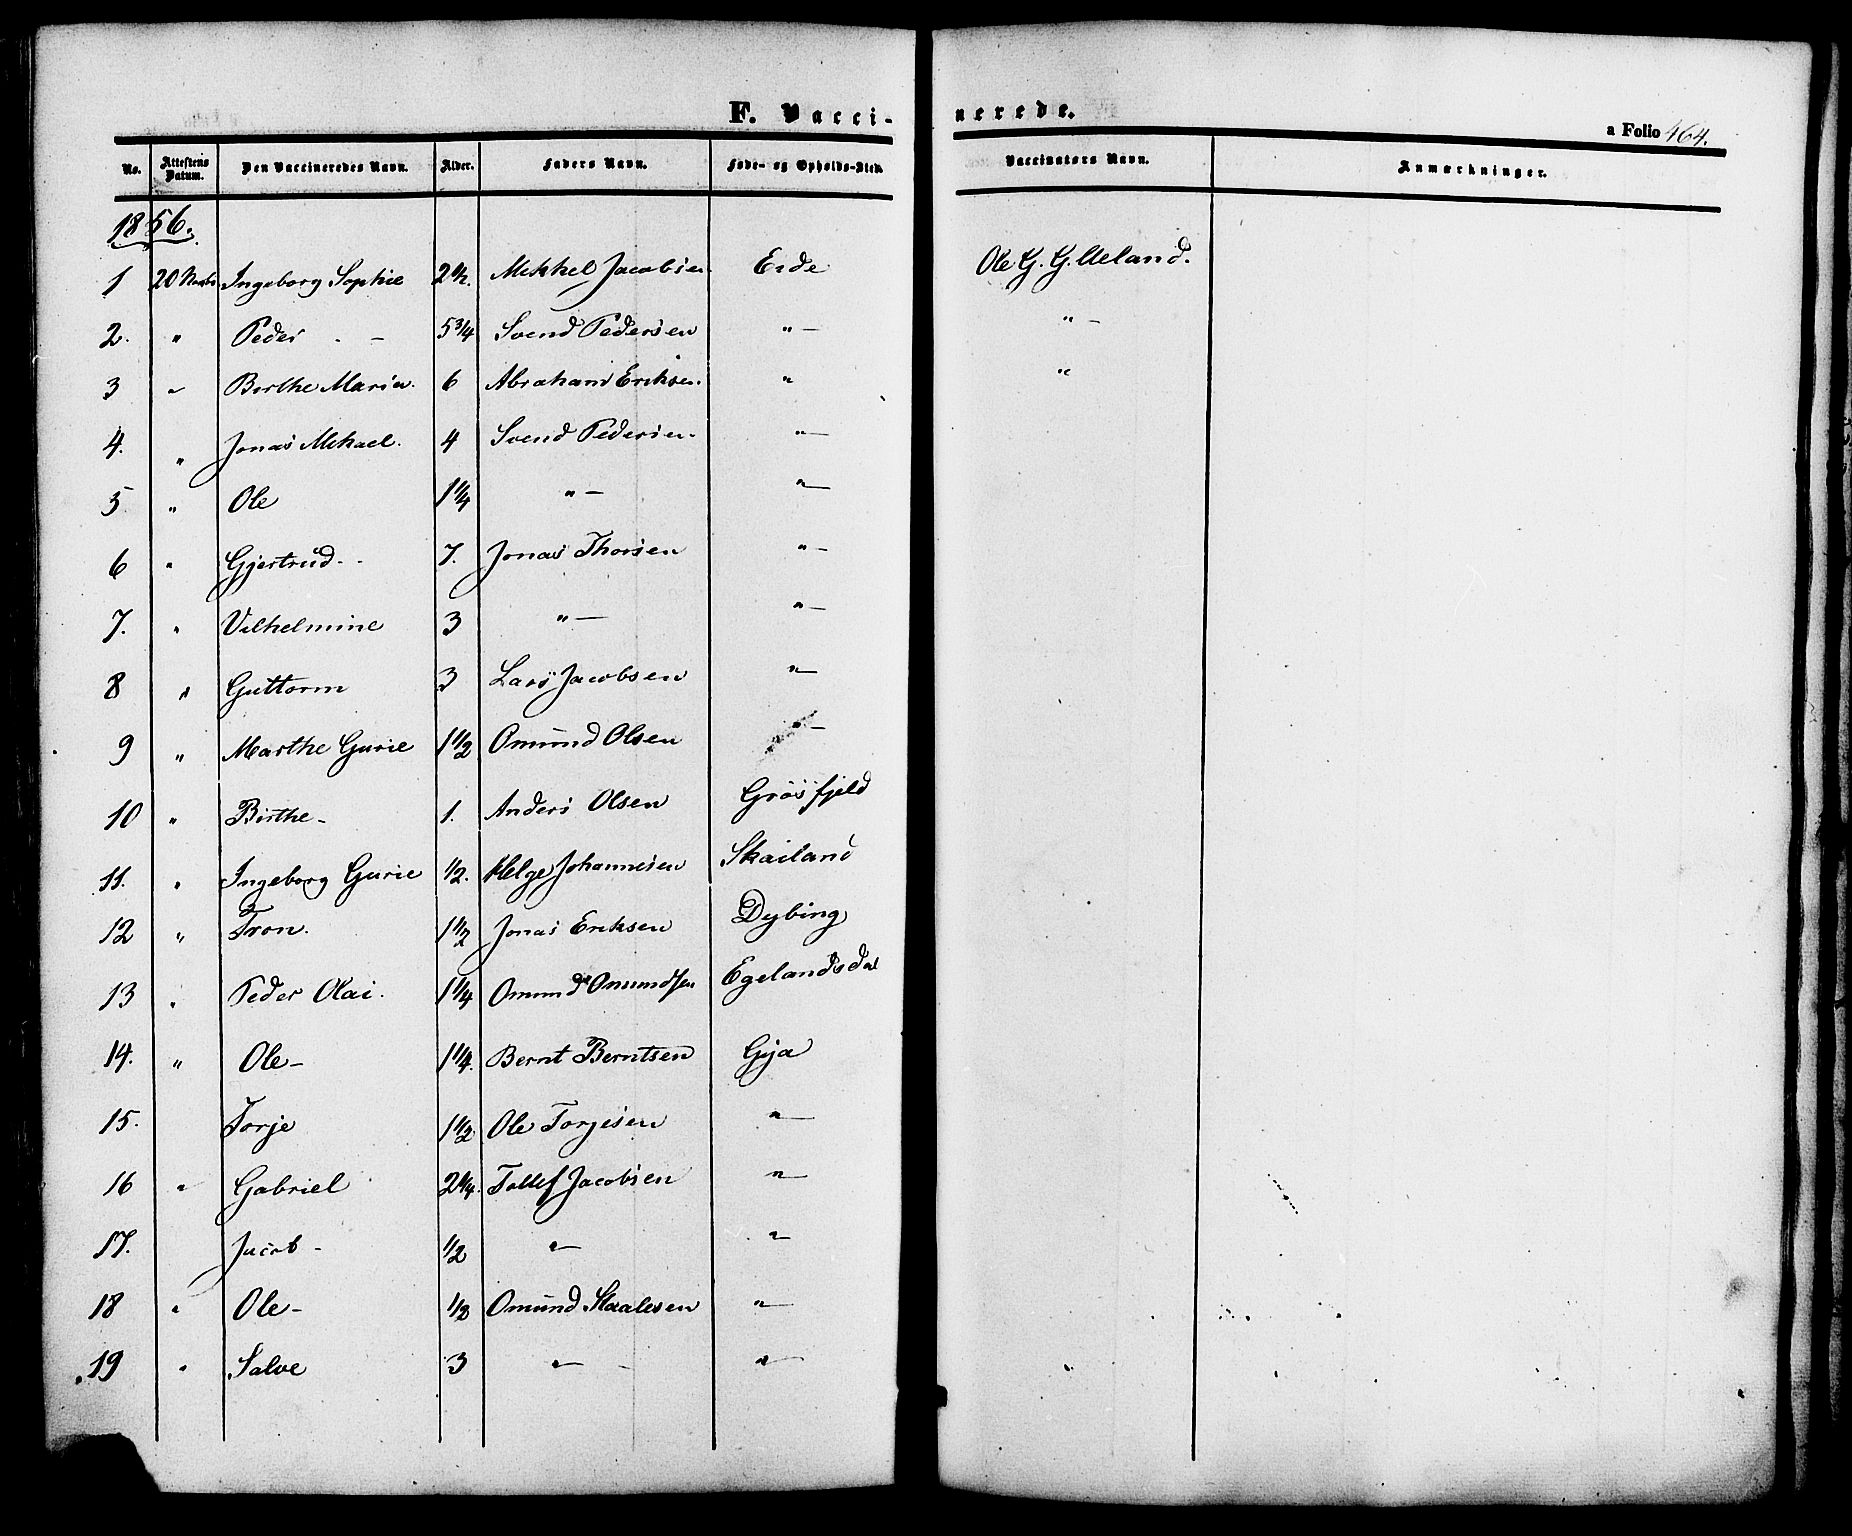 F. Vaccinerede.
a Folio 464.
No. Attestens Datum. Den Vaccineredes Navn. Alder. Faders Navn. Føde- og Opholds-Sted. Vaccinators Navn. Anmærkninger.
1856.
1 20 Novbr. Ingeborg Sophie 2 1/2. Mikkel Jacobsen Eide Ole G. G. Ueland.
2. " Peder - 5 3/4 Svend Pedersen " - " -
3 " Birthe Maria. 6 Abraham Eriksen. " "
4. " Jonas Mikael. 4 Svend Pedersen. " -
5 " Ole 1 1/4 " - " -
6 " Gjertrud - 7. Jonas Thorsen " -
7. " Vilhelmine 3 " - " -
8 " Guttorm 3 Lars Jacobsen "
9 " Marthe Gurie 1 1/2 Omund Olsen " -
10 " Birthe - 1. Anders Olsen Grøsfjeld
11. " Ingeborg Gurie 1/2. Helge Johannesen Skailand
12 " Tron. 1 1/2 Jonas Eriksen Dybing
13 " Peder Olai. 1 1/4 Omund Omundsen Egelandsdal
14. " Ole - 1 1/4. Bernt Berntsen Gya
15. Torje 1 1/2 Ole Torjesen " -
16 " Gabriel 2 1/4. Tollef Jacobsen "
17. Jacob - 1/2 " "
18 " Ole - 1/2 Omund Skaalesen "
19 " Salve 3 " - "